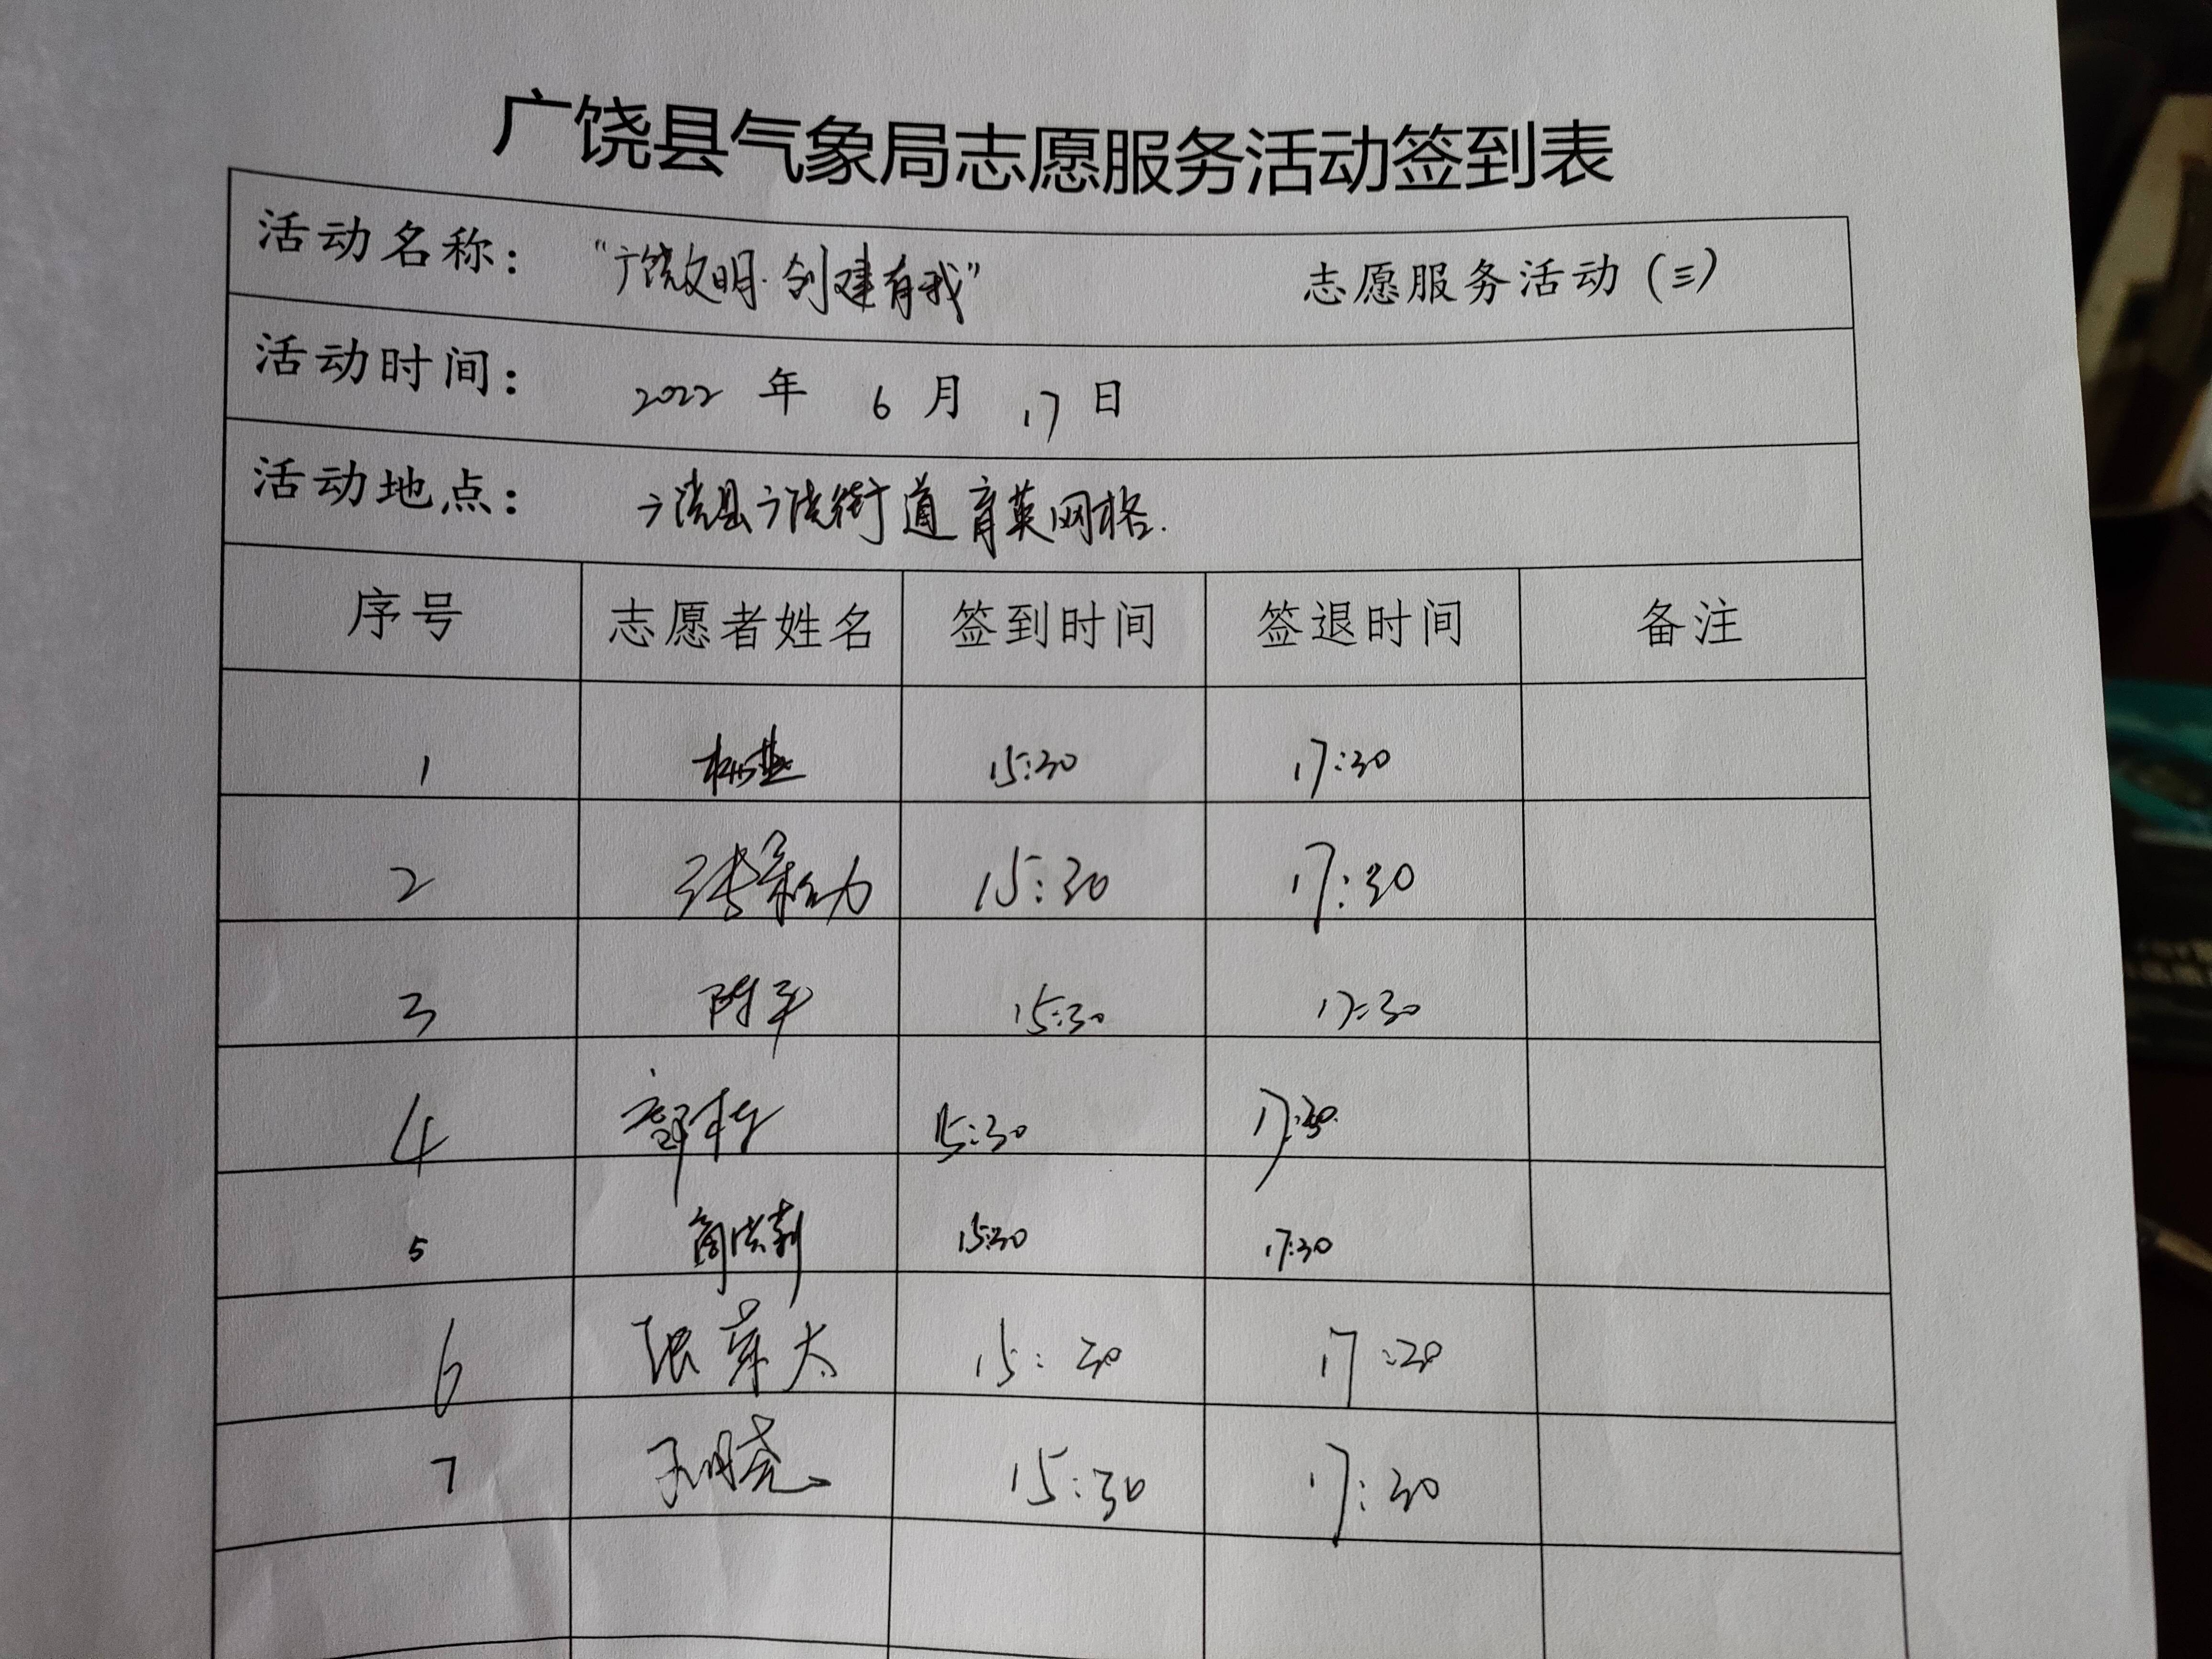 广饶县气象局志愿服务活动签到表
活动名称： “广饶文明·创建有我” 志愿服务活动（三）
活动时间： 2022 年 6 月 17 日
活动地点： 广饶县广饶街道育英网格.
序号 志愿者姓名 签到时间 签退时间 备注
1 15:30 17:30
2 15:30 17:30
3 陈平 15:30 17:30
4 15:30 17:30
5 15:30 17:30
6 15:30 17:30
7 15:30 17:30